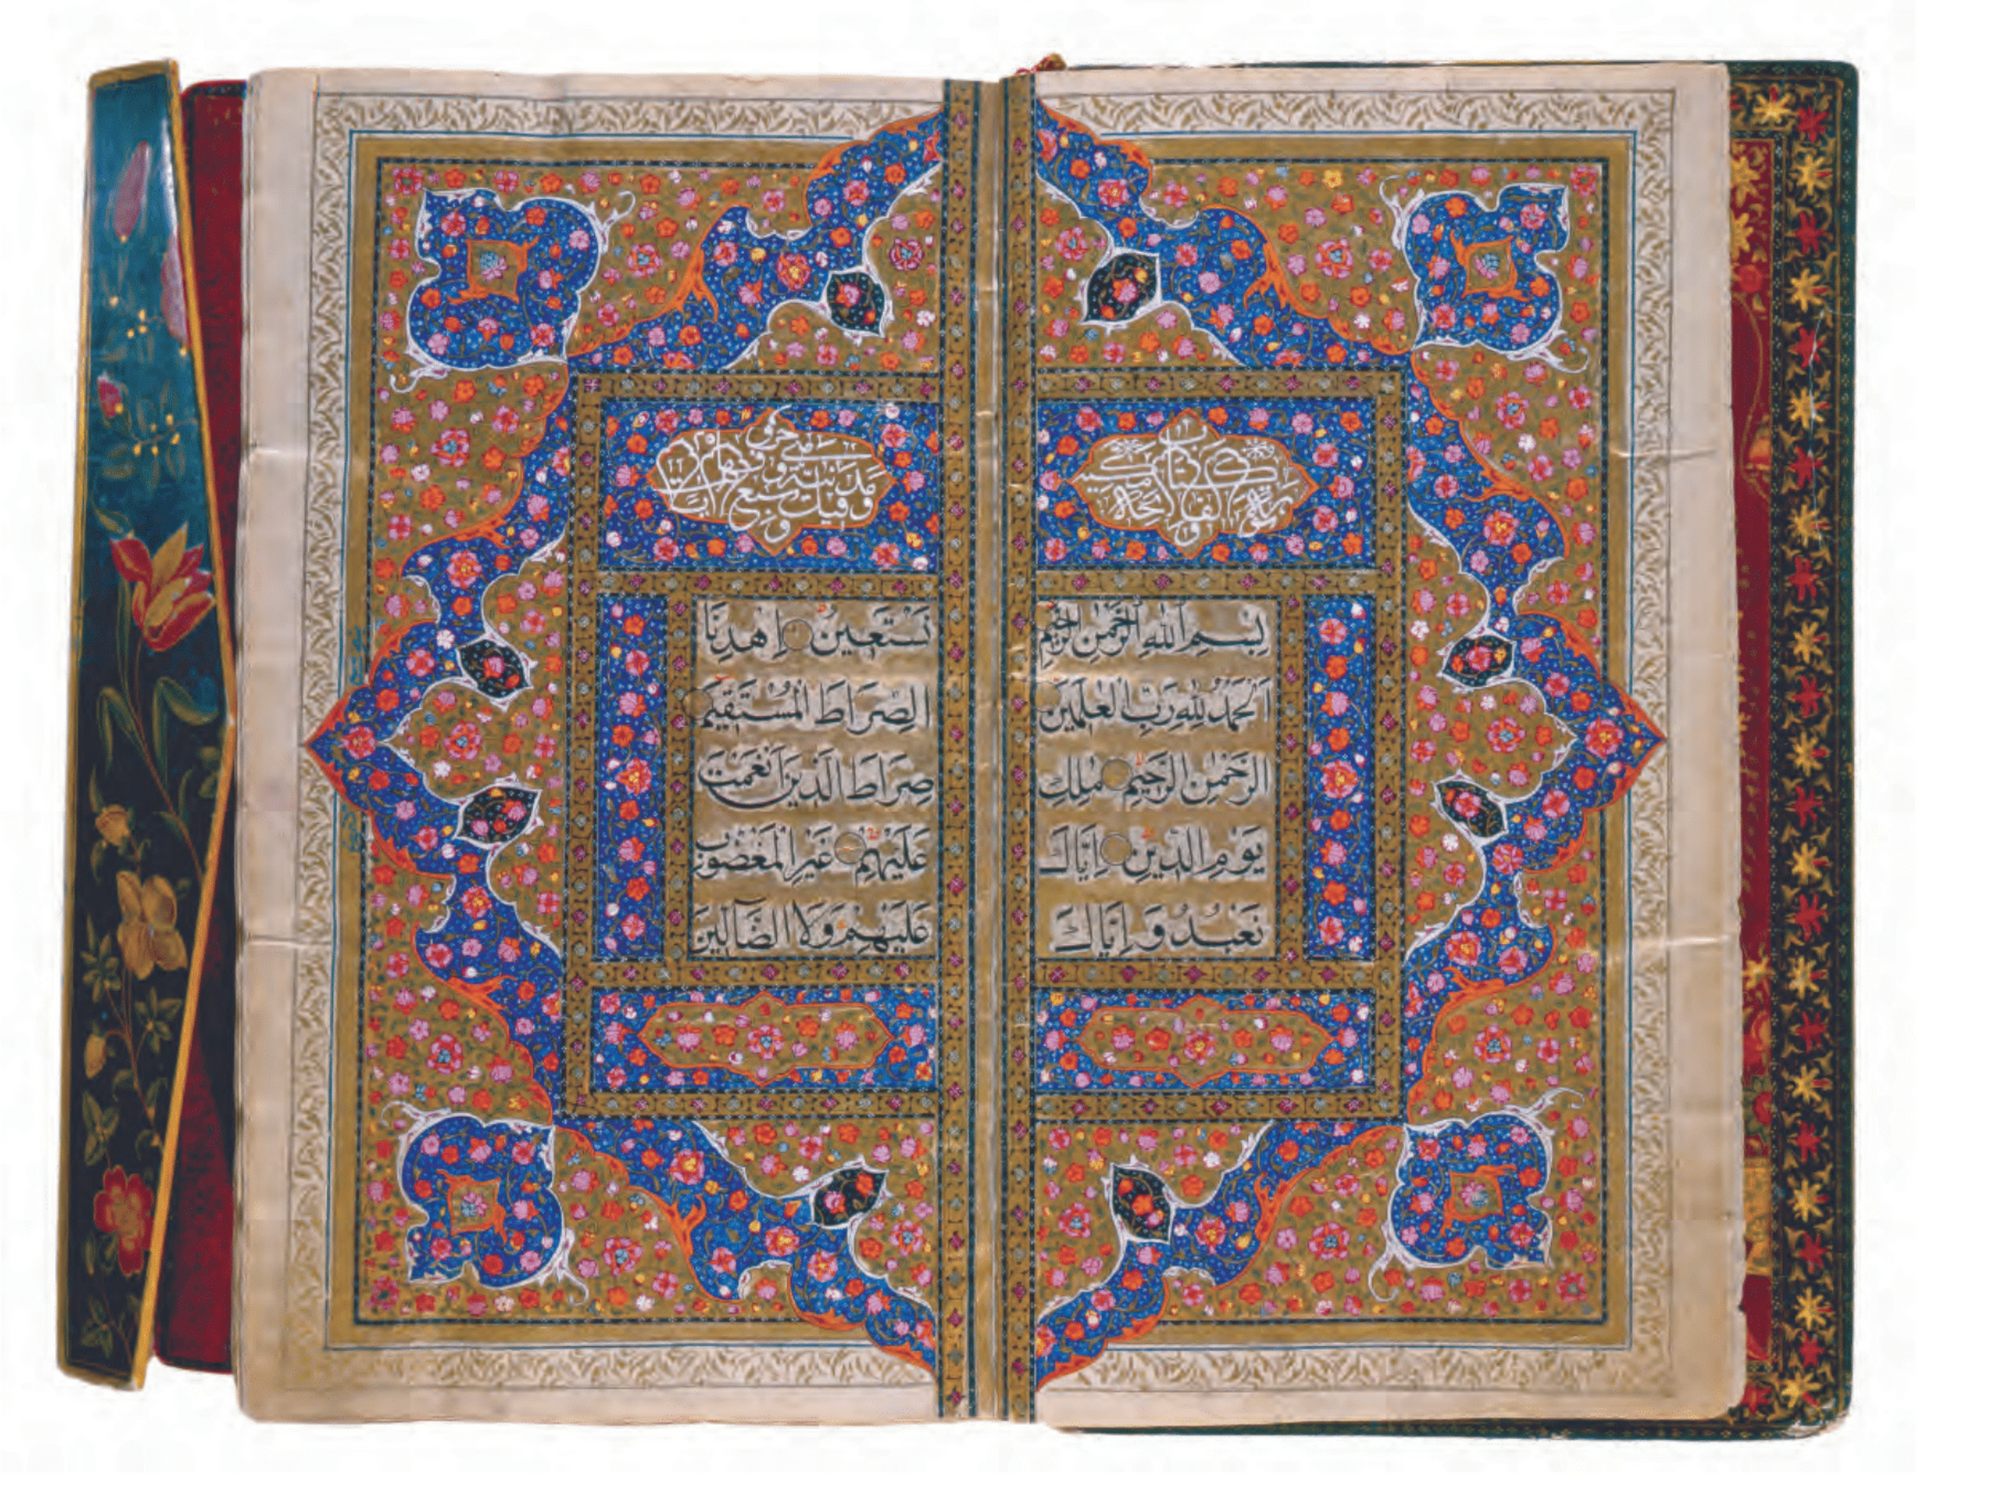 بِسْمِ اللهِ الرَّحْمٰنِ الرَّحِيمِ
اَلْحَمْدُ لِلّٰهِ رَبِّ الْعٰلَمِينَ
الرَّحْمٰنِ الرَّحِيمِ مٰلِكِ
يَوْمِ الدِّينِ اِيَّاكَ
نَعْبُدُ وَ اِيَّاكَ
نَسْتَعِينُ اِهْدِنَا
الصِّرَاطَ الْمُسْتَقِيمَ
صِرَاطَ الَّذِينَ اَنْعَمْتَ
عَلَيْهِمْ غَيْرِ الْمَغْضُوبِ
عَلَيْهِمْ وَلَا الضَّالِّينَ